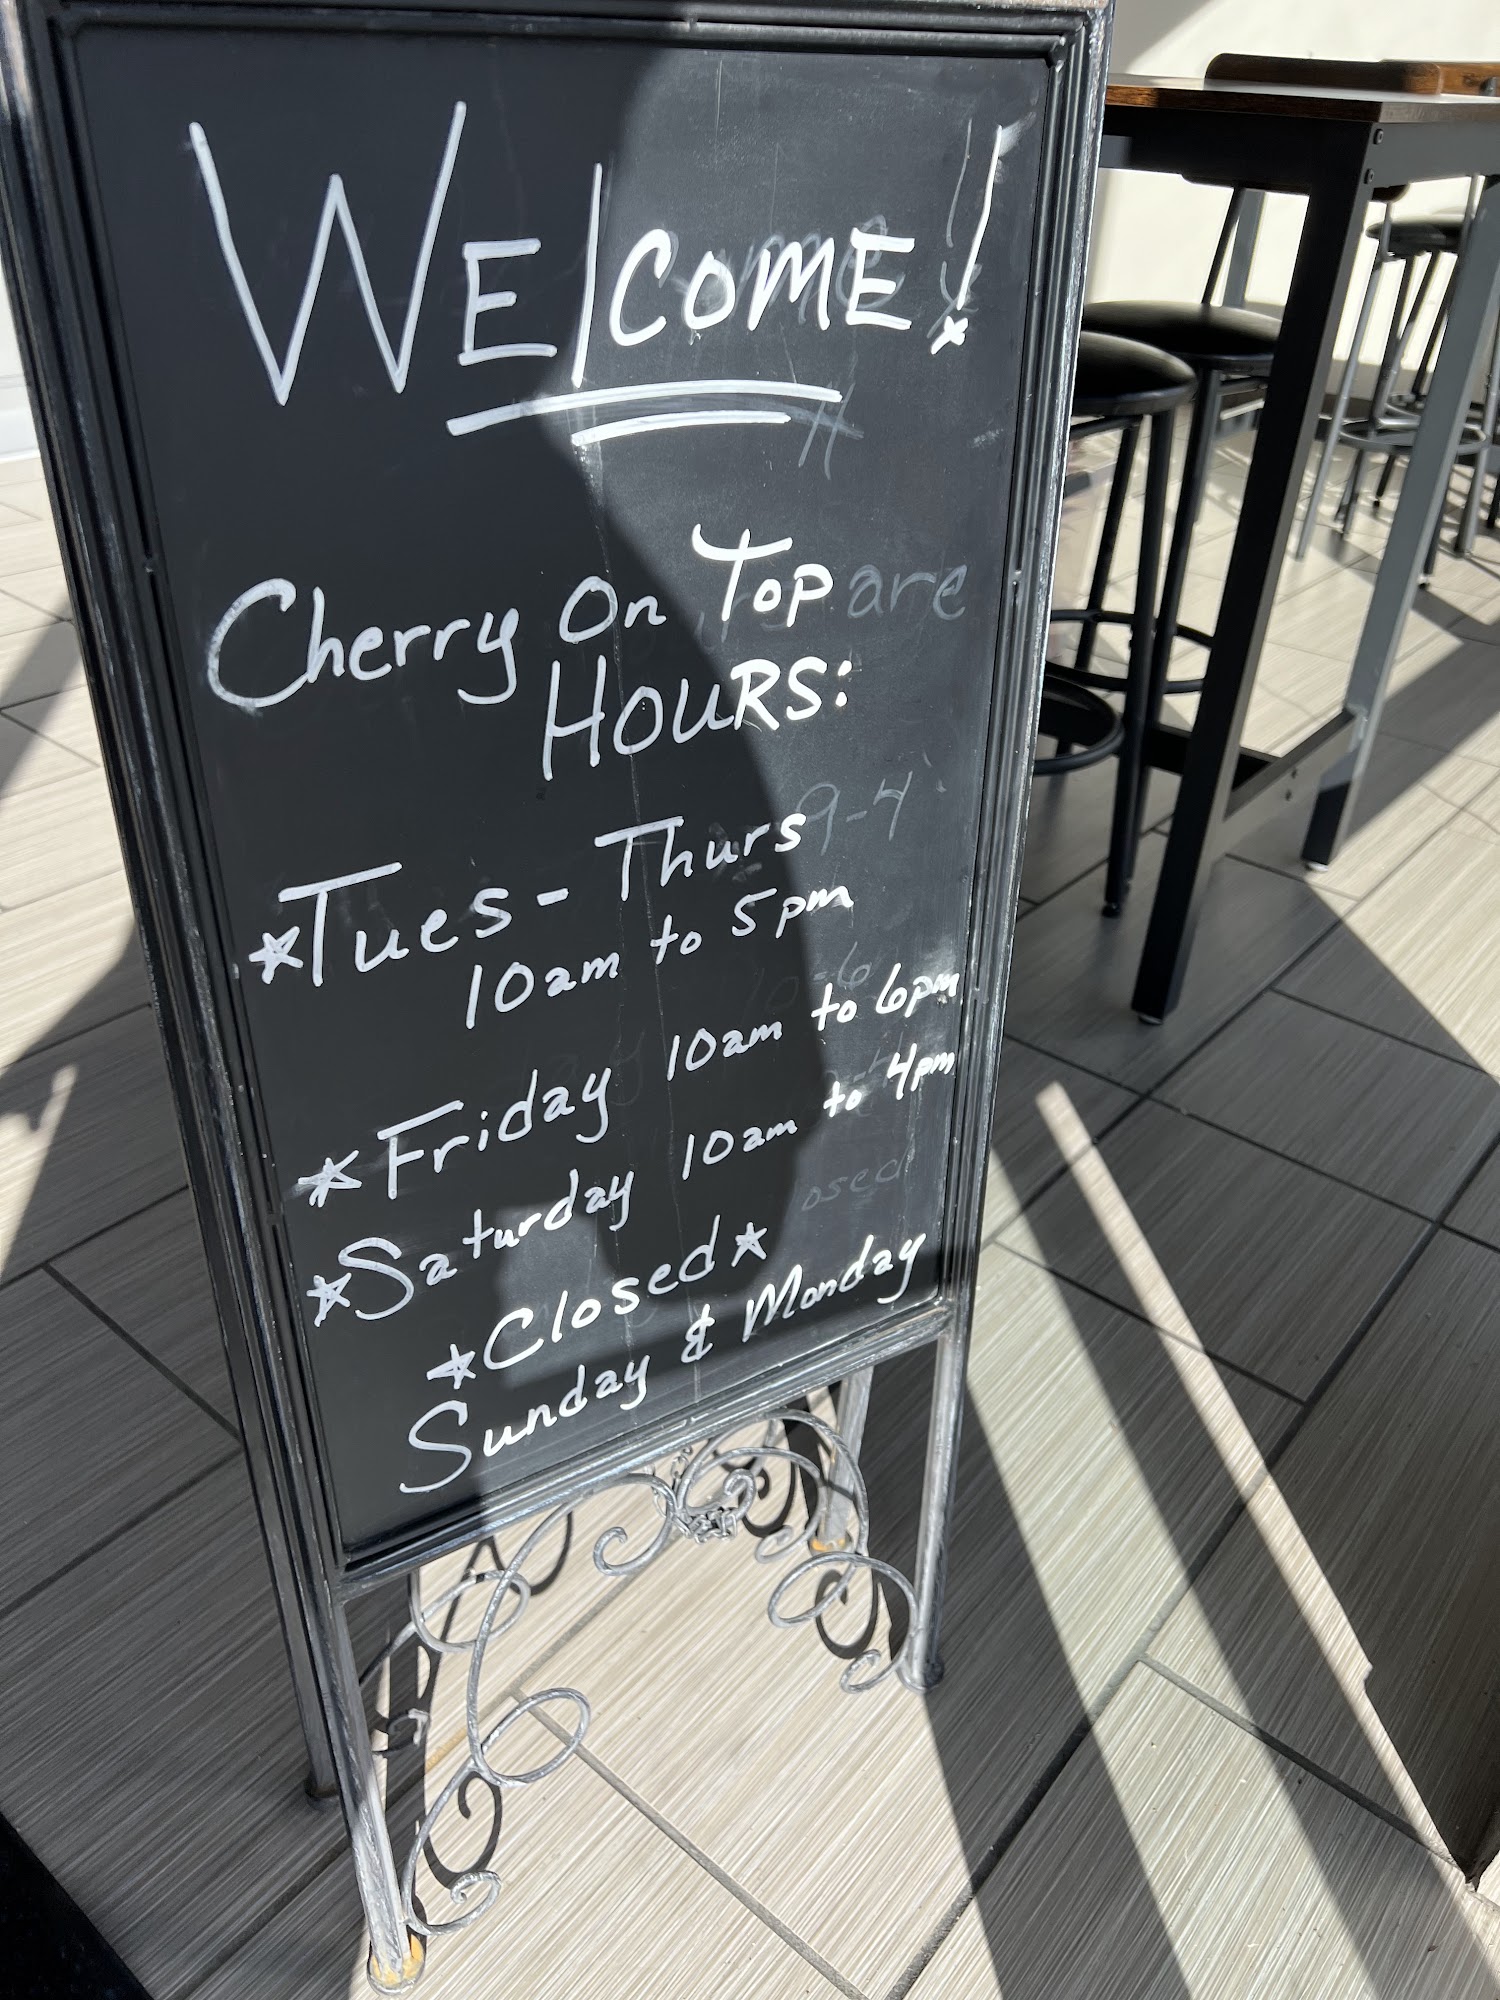 WElCOME!
Cherry On Top
HOURS:
Tues - Thurs
10am to 5pm
Friday 10am to 6pm
Saturday 10am to 4pm
Closed
Sunday & Monday
are
9-4
10-6